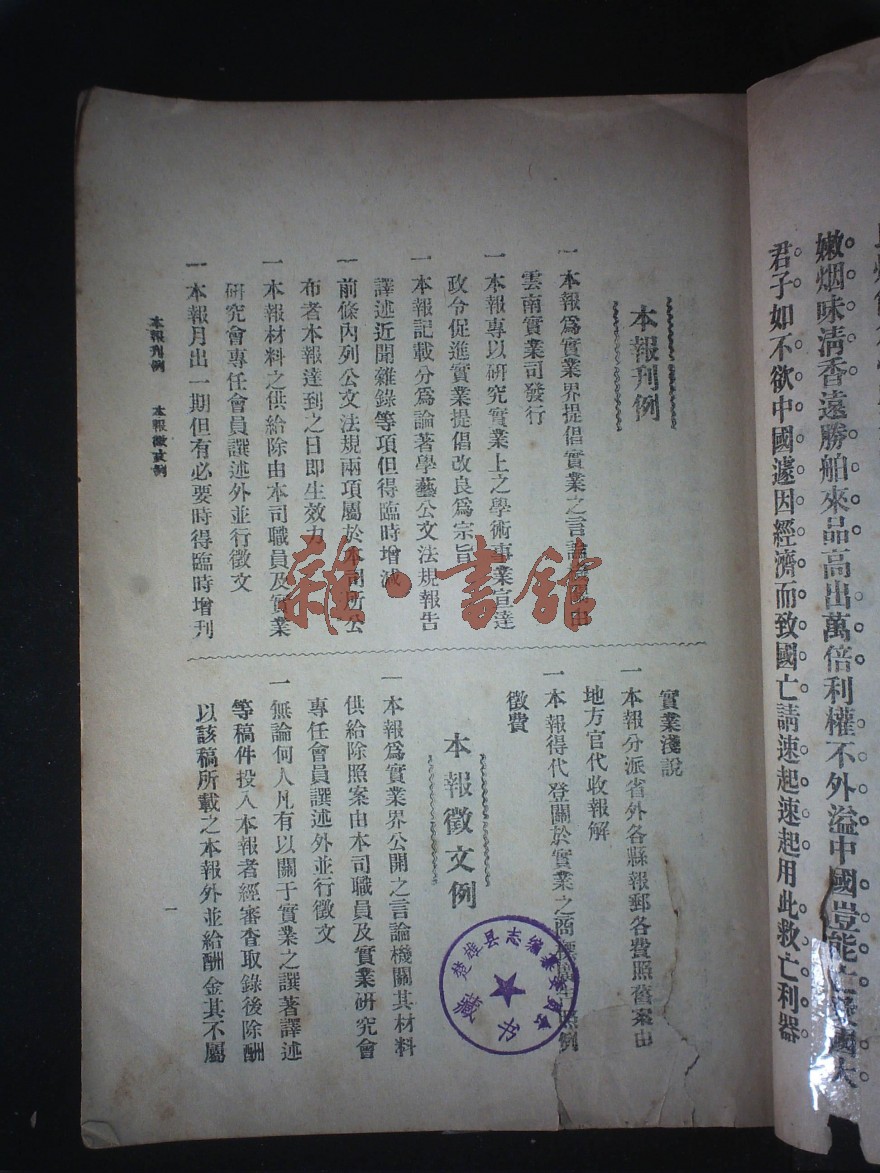 嫩烟味淸香遠勝舶來品高出萬倍利權不外溢中國豈能亡愛國大
君子如不欲中國遽因經濟而致國亡請速起速起用此救亡利器
本報刊例
一本報爲實業界提倡實業之言論機關由
雲南實業司發行
一本報專以硏究實業上之學術事業宣達
政令促進實業提倡改良爲宗旨
一本報記載分爲論著學藝公文法規報告
譯述近聞雜錄等項但得臨時增減
一前條內列公文法規兩項屬於本司所公
布者本報達到之日即生效力
一本報材料之供給除由本司職員及實業
硏究會專任會員譔述外並行徵文
一本報月出一期但有必要時得臨時增刊
實業淺說
一本報分派省外各縣報郵各費照舊案由
地方官代收報解
一本報得代登關於實業之商標廣告照例
徵費
本報徵文例
一本報爲實業界公開之言論機關其材料
供給除照案由本司職員及實業硏究會
專任會員譔述外並行徵文
一無論何人凡有以關于實業之譔著譯述
等稿件投入本報者經審查取錄後除酬
以該稿所載之本報外並給酬金其不屬
本報刊例 本報徵文例
一
雜·書館
楚雄县志编纂委员会
藏书